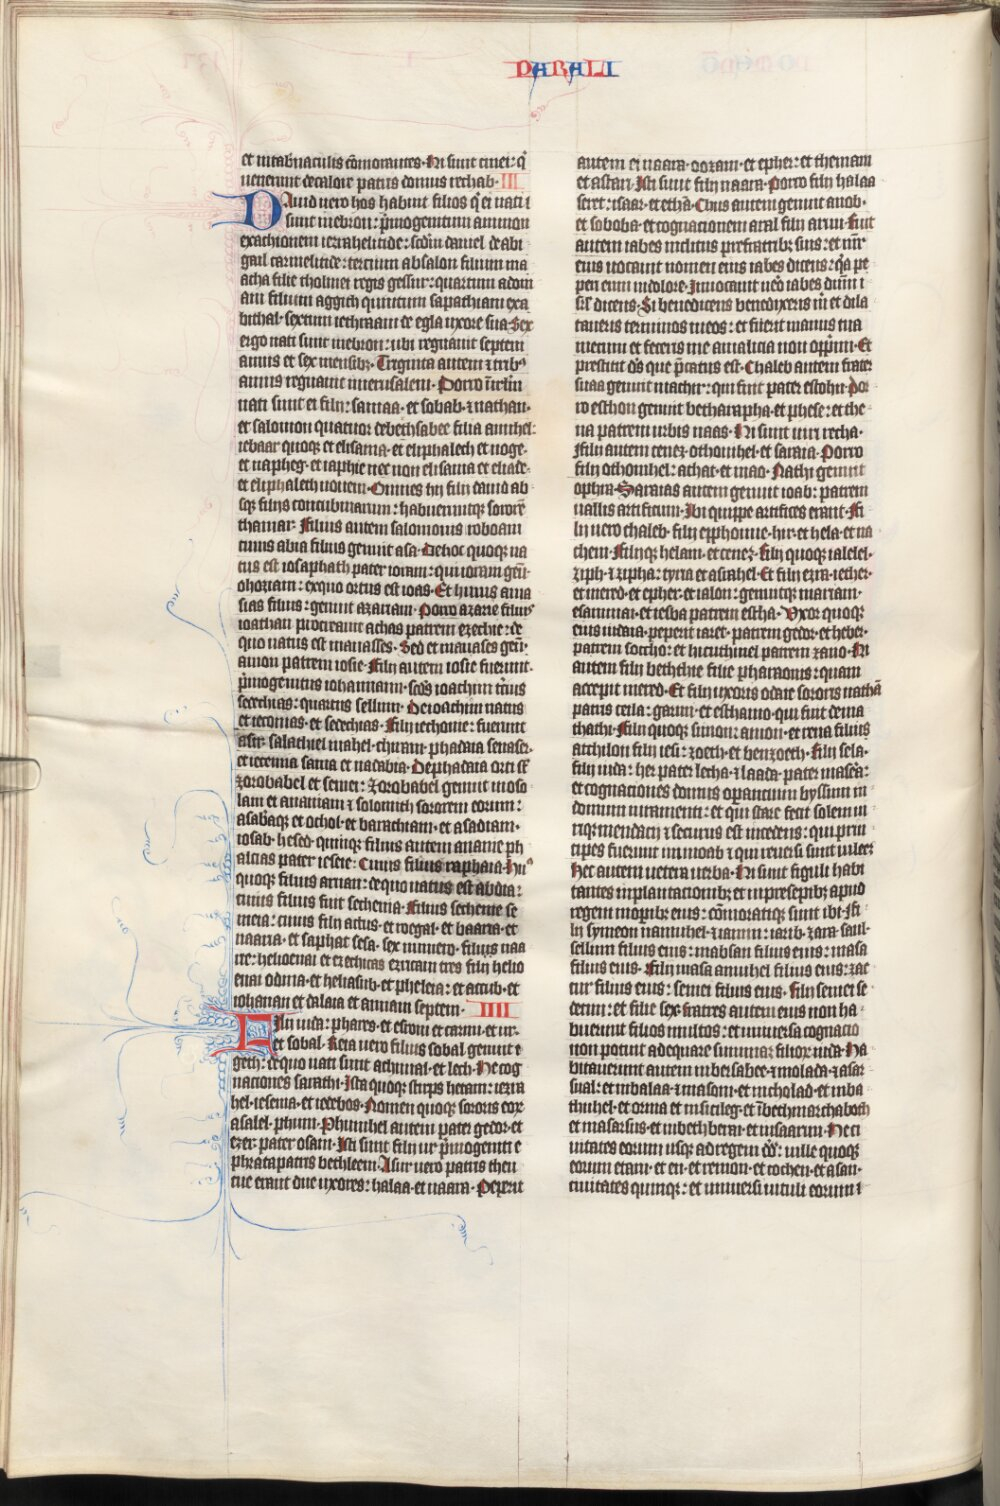 PARALI
et in tab̄naculis cōmorantes. Hi sunt cinei: q̄
uenerunt de calore patris domus rechab. III
Dauid uero hos habuit filios q̄ ei nati ī
sunt in ebron: p̄mogenitum amnon
ex achionem iezrahelitide: scdm̄ daniel de abi
gail carmelitide: tercium absalon filium ma
acha filie tholmei regis gessur: quartum adom
am filium aggith quintum saphathiam exa
bithal. sextum iethraam de egla uxore sua. Sex
ergo nati sunt in ebron: ubi regnauit septem
annis et sex mensibꝫ. Triginta autem ⁊ tribꝰ
annis regnauit in ierusalem. Porro ī irl̄m
nati sunt ei filii: samaa. et sobab. ⁊ nathan.
et salomon quatuor de bethsabee filia amihel:
iebaar quoqꝫ et elisama. et eliphalech et noge.
et napheg. et iaphie nec non elisama et eliade.
et eliphalech nouem. Omnes hii filii dauid ab
sqꝫ filiis concubinarum: habueruntqꝫ sororē
thamar. Filius autem salomonis roboam
cuius abia filius genuit asa. De hoc quoqꝫ na
tus est iosaphath pater ioram: qui ioram genū.
ohoziam: ex quo ortus est ioas. Et huius ama
sias filius: genuit azariam. Porro azarie filius
ioathan procreauit achas patrem ezechie: de
quo natus est manasses. Sed et manases genū.
amon patrem iosie. Filii autem iosie fuerunt.
p̄mogenitus iohannam: scds̄ ioachim tcius
sedechias: quartus sellum. De ioachim natus
et ieconias. et sedechias. Filii iechonie: fuerunt
asir. salachiel mahel. chiram phadaia senaser.
et iecemia sama et nadabia. De phadaia orti st̄
zorobabel et semei: Zorobabel genuit moso
lam et ananiam ⁊ solomith sororem eorum:
asabaqꝫ et ochol. et barachiam. et asadiam.
iosab. hesed. quinqꝫ filius autem ananie ph
altias pater ieseie: Cuius filius raphaia. Huiꝰ
quoqꝫ filius arnan: de quo natus est abdia:
cuius filius fuit sechenia. Filius sechenie se
meia: cuius filii actus. et ioegal. et baaria. et
naaria. et saphat sesa. sex numero. filius naa
rie: helioenai et ezechias ezricam tres filii helio
enai oduia. et heliasub. et pheleia: et accub. et
iohanan et dalaia et annani septem. IIII
Filii iuda: phares. et esrom et carmi. et ur.
et sobal. Reia uero filius sobal genuit e
geth: de quo nati sunt achimai. et lech. He cog
naciones sarathi. Ista quoqꝫ stirps hetam: iezra
hel. iesema. et iedebos. Nomen quoqꝫ sororis eoꝝ
asalel. phuni. Phunihel autem pater gedor. et
ezer pater osam. Isti sunt filii ur p̄mogeniti e
phrata patris bethleem. Asur uero patris theu
cue erant due uxores: halaa. et naara. Peperit
autem ei naara. oozam. et epher: et themani
et astari. Isti sunt filii naara. Porro filii halaa
seret: isaar. et ethā. Chus autem genuit anob.
et soboba. et cognacionem aral filii arim. Fuit
autem iabes inclitus pre fratribꝫ suis: et mr̄
eius uocauit nomen eius iabes dicens: q̄a pe
peri eum in dolore. Inuocauit uēo iabes dūm ī
sr̄l dicens. Si benedicens benedixeris m̄ et dila
taueris terminos meos: et fuerit manus tua
mecum et feceris me a malicia non opp̄mi. Et
prestitit ds̄ que p̄catus est. Chaleb autem frater
suaa genuit machir: qui fuit pater esthon. Por
ro esthon genuit betharapha. et phese: et the
na patrem urbis naas. Hi sunt uiri recha.
Filii autem cenez. othonihel. et saraia. Porro
filii othonihel: athat. et mao. Nathi genuit
ophra. Saraias autem genuit ioab: patrem
uallis artificum. Ibi quippe artifices erant. Fi
lii uero chaleb. filii epphonne. hir. et hela. et na
chem. Filiiqꝫ helam. et cenez. Filii quoqꝫ ialelel.
ziph. ⁊ zipha: tyria et asrahel. Et filii ezra. iether.
et mered. et epher. et ialon: genuitqꝫ mariam.
et sammai. et iesba patrem estha. Vxor quoqꝫ
eius iudaia. peperit iaret. patrem gedor. et heber.
patrem socho: et hicuthihel patrem zano. Hi
autem filii bethīhie filie pharaonis: quam
accepit mered. Et filii uxoris odaie sororis nathā
patris ceila: garim. et esthamo. qui fuit de ma
thathi. Filii quoqꝫ simon: amon. et rena filius
atchilon filii iesi: zoeth. et benzoeth. Filii sela.
filii iuda: her pater lecha. ⁊ laada. pater masēa:
et cognaciones domus opancium byssum in
domum iuramenti: et qui stare fecit solem ui
riqꝫ mendacii ⁊ securus est incedens: qui prin
cipes fuerunt in moab ⁊ qui reuersi sunt in lee:
Hec autem uetera uerba. Hi sunt figuli habi
tantes in plantacionibꝫ et in presepibꝫ apud
regem in opibꝫ eius: cōmoratiqꝫ sunt ibi. Fi
lii symeon namuhel. ⁊ iamin: iarib. zara. saul.
sellum filius eius: mabsan filius eius: masa
filius eius. Filii masa amuhel filius eius: zac
cur filius eius: semei filius eius. Filii semei se
decim: et filie sex. fratres autem eius non ha
buerunt filios multos: et uniuersa cognacio
non potuit adequare summam filioꝝ iuda. Ha
bitauerunt autem in bersabee. ⁊ molada. ⁊ asar
sual: et in balaa. ⁊ in asom. et in cholad. et in ba
thuhel. et orma et in sicileg. et ī bethmarchaboth
et in asarsus. et in bethberai. et in saarim. He ci
uitates eorum usqꝫ ad regem dd̄: uille quoqꝫ
eorum etam. et en. et remon. et tochen. et asan.
ciuitates quinqꝫ: et uniuersi uiculi eorum ⁊